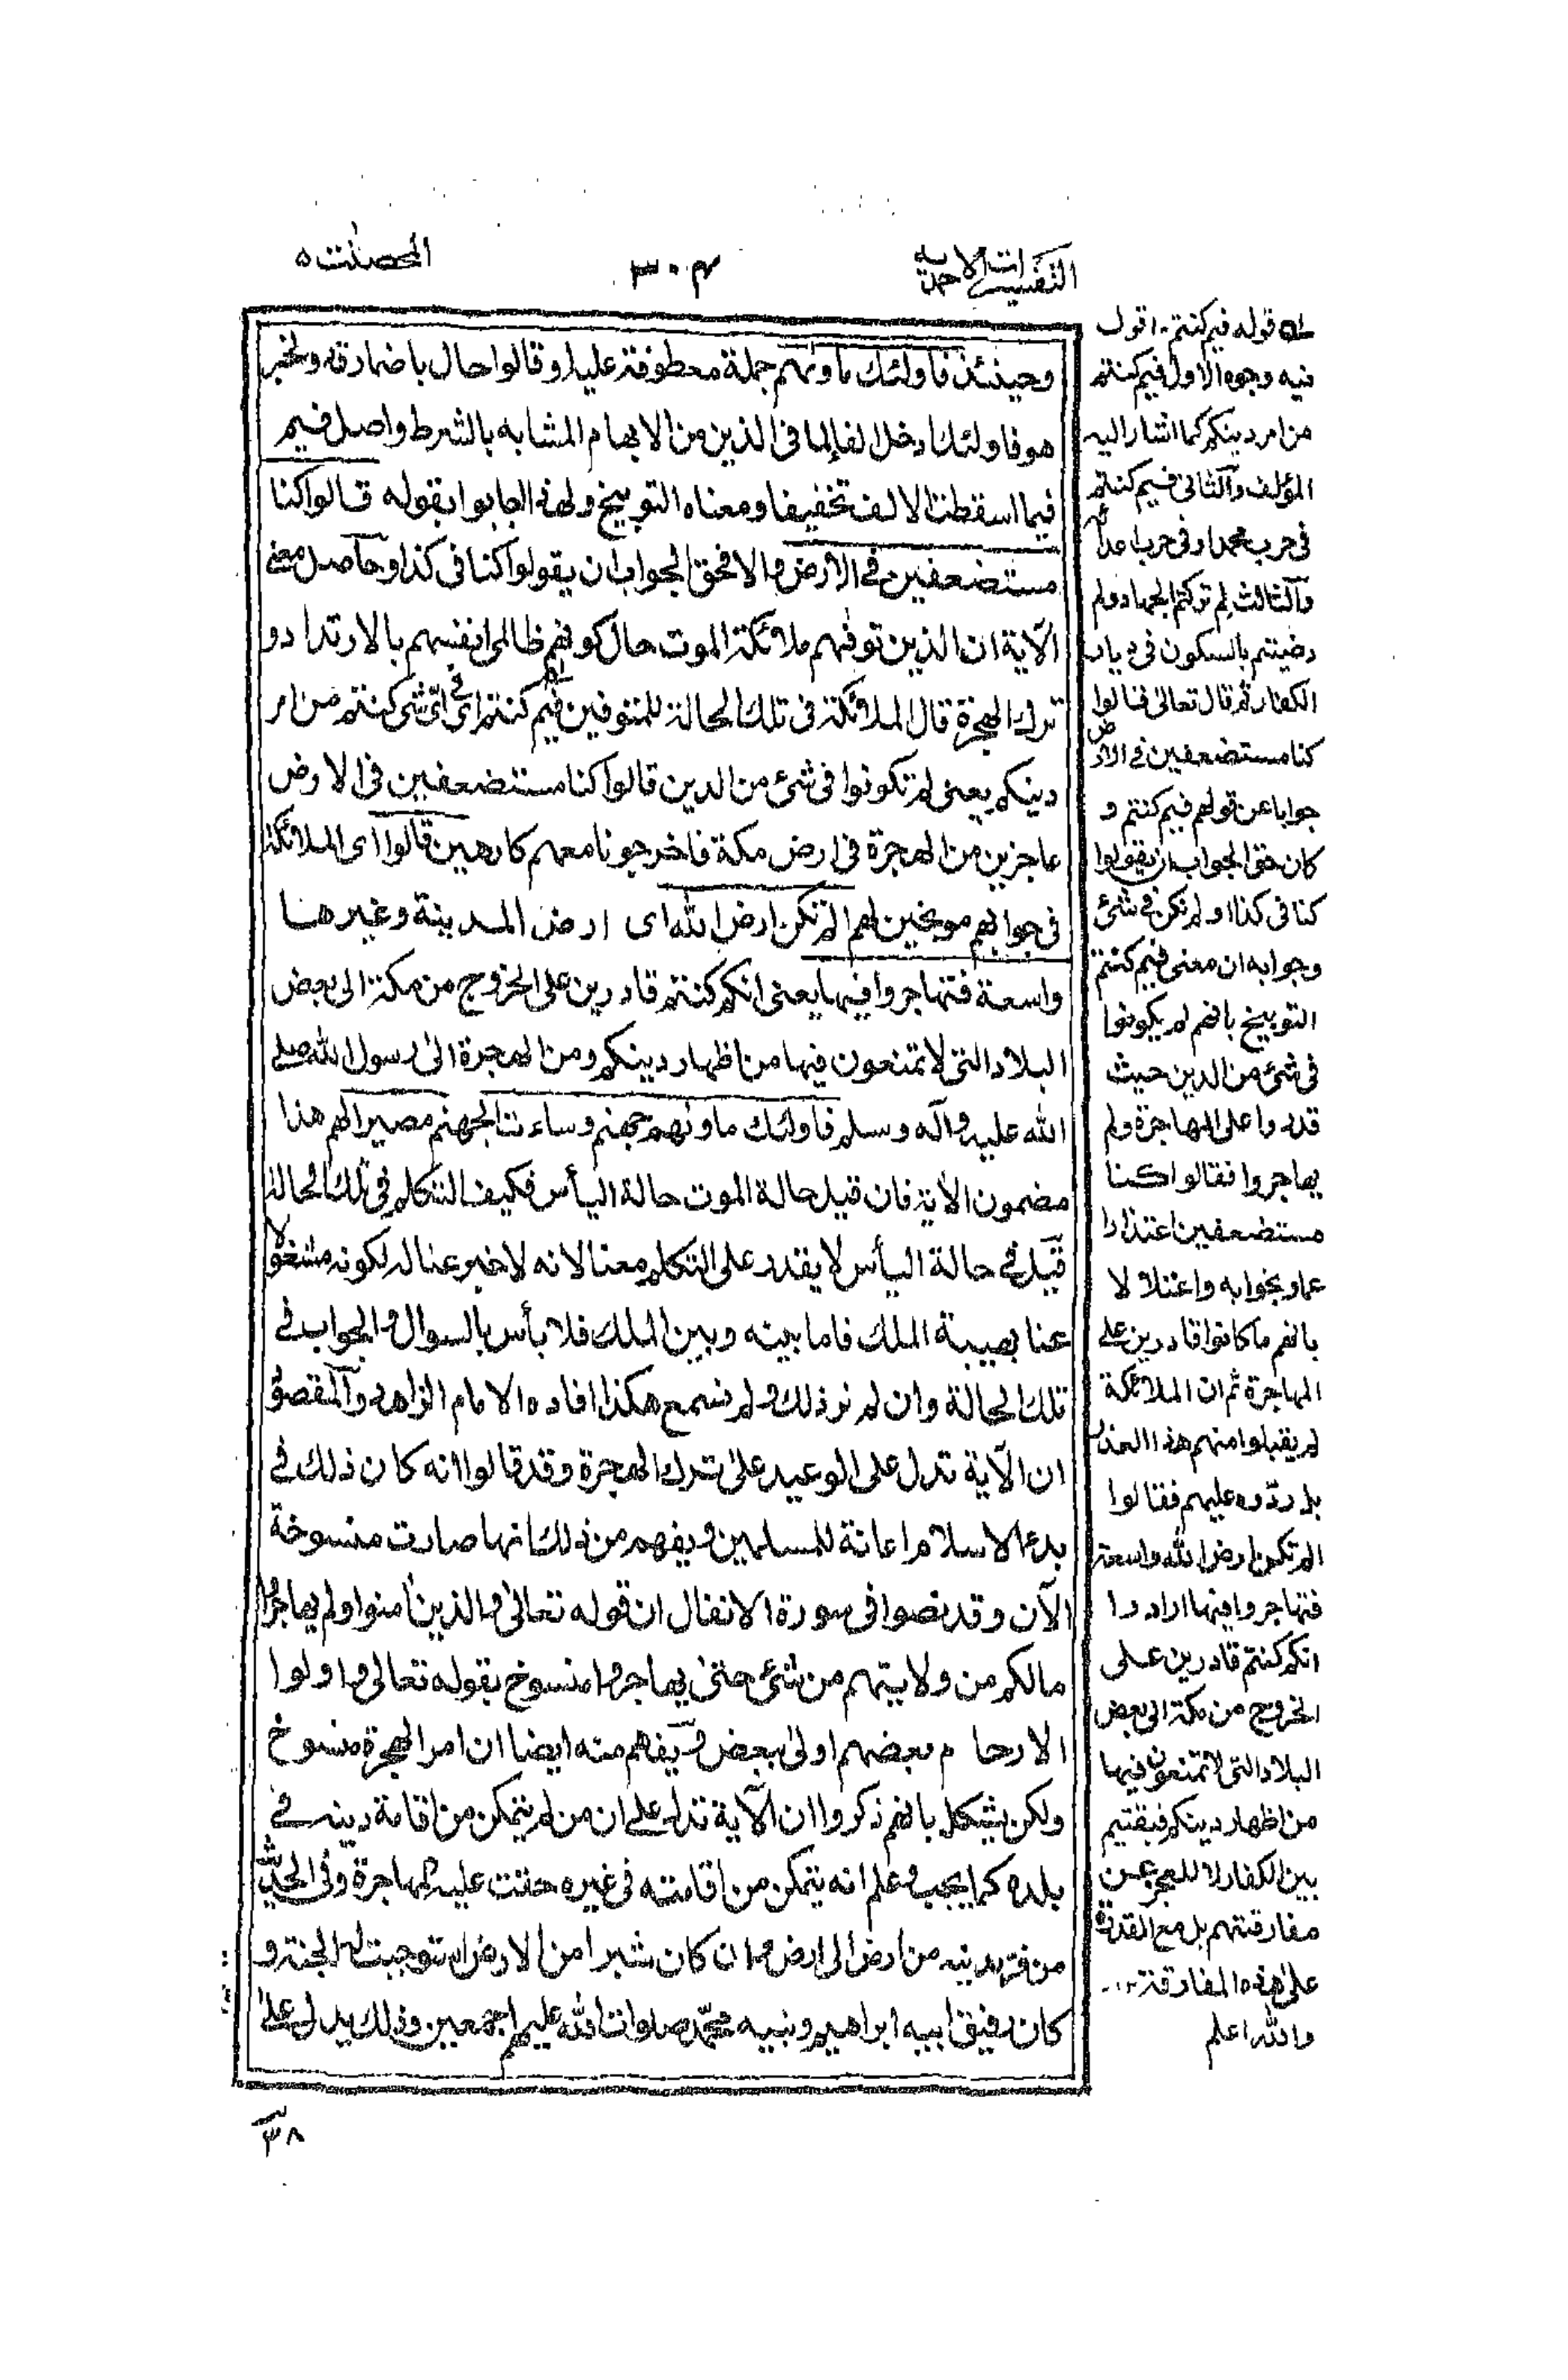 التفسيرات الاحمدية
٣٠٤
المحصنٰت ٥
وحينئذ فاولئك ماوٰىهم جملة معطوفة عليه او قالوا حال باضمار قد والخبر
هو فاولئك ادخل الفاء لما فى الذين من الابهام المشابه بالشرط واصل فيم
فيما اسقطت الالف تخفيفا ومعناه التوبيخ ولهذا اجابوا بقوله قالوا كنا
مستضعفين فى الارض والا فحق الجواب ان يقولوا كنا فى كذا وحاصل معنى
الآية ان الذين توفٰىهم ملائكة الموت حال كونهم ظالمى انفسهم بالارتداد و
ترك الهجرة قال الملائكة فى تلك الحالة للمتوفين فيم كنتم اى فى اىّ شئ كنتم من امر
دينكم يعنى لم تكونوا فى شئ من الدين قالوا كنا مستضعفين فى الارض
عاجزين من الهجرة فى ارض مكة فاخرجونا معهم كارهين قالوا اى الملائكة
فى جوابهم موبخين لهم الم تكن ارض الله اى ارض المدينة وغيرها
واسعة فتهاجروا فيها يعنى انكم كنتم قادرين على الخروج من مكة الى بعض
البلاد التى لا تمتنعون فيها من اظهار دينكم ومن الهجرة الى رسول الله صلى
الله عليه وآله وسلم فاولئك ماوٰىهم جهنم وساءت الجهنم مصيرا لهم هذا
مضمون الآية فان قيل حالة الموت حالة اليأس فكيف التكلم فى تلك الحالة
قيل فى حالة اليأس لا يقدر على التكلم معنا لانه لا خبر عنا له لكونه مشغولا
عنا بهيبة الملك فاما بينه وبين الملك فلا بأس بالسوال والجواب فى
تلك الحالة وان لم نر ذلك ولم نسمع هكذا افاده الامام الزاهد والمقصود
ان الآية تدل على الوعيد على ترك الهجرة وقد قالوا انه كان ذلك فى
بدء الاسلام اعانة للمسلمين ويفهم من ذلك انها صارت منسوخة
الآن وقد نصوا فى سورة الانفال ان قوله تعالى والذين اٰمنوا ولم يهاجروا
مالكم من ولايتهم من شئ حتى يهاجروا منسوخ بقوله تعالى واولوا
الارحام بعضهم اولى ببعض ويفهم منه ايضا ان امر الهجرة منسوخ
ولكن يشكل بانهم ذكروا ان الآية تدل على ان من لم يتمكن من اقامة دينه فى
بلده كما يجب وعلم انه يتمكن من اقامته فى غيره حقت عليه المهاجرة وفى الحديث
من فر بدينه من ارض الى ارض وان كان شبرا من الارض استوجبت له الجنة و
كان رفيق ابيه ابراهيم ونبيه محمّد صلوات الله عليهم اجمعين وذلك يدل على
له قوله فيم كنتم۔ اقول
فيه وجوه الاول فيم كنتم
من امر دينكم كما اشار اليه
المؤلف والثانى فيم كنتم
فى حرب محمد او فى حرب اعدائه
والثالث لم تركتم الجهاد ولم
رضيتم بالسكون فى ديار
الكفار ثم قال تعالى قالوا
كنا مستضعفين فى الارض
جوابا عن قولهم فيم كنتم و
كان حق الجواب ان يقولوا
كنا فى كذا او لم نكن فى شئ
وجوابه ان معنى فيم كنتم
التوبيخ بانهم لم يكونوا
فى شئ من الدين حيث
قدروا على المهاجرة ولم
يهاجروا فقالوا كنا
مستضعفين اعتذارا
عما وبخوا به واعتلالا
بانهم ما كانوا قادرين على
المهاجرة ثم ان الملائكة
لم يقبلوا منهم هذا العذر
بل ردّوه عليهم فقالوا
الم تكن ارض الله واسعة
فتهاجروا فيها ارادوا
انكم كنتم قادرين على
الخروج من مكة الى بعض
البلاد التى لا تمتنعون فيها
من اظهار دينكم فبقيتم
بين الكفار لا للعجز عن
مفارقتهم بل مع القدرة
على هذه المفارقة ١٢۔
والله اعلم
٣٨